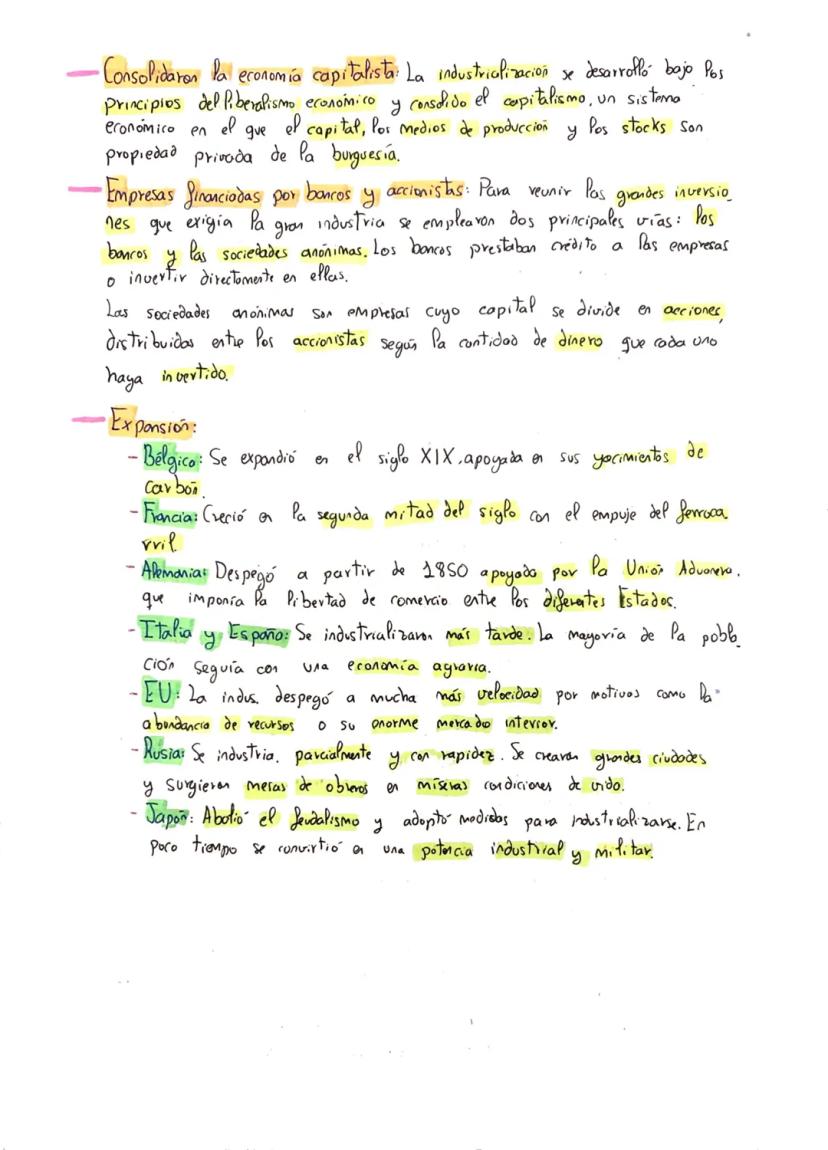 — Consolidaron la economía capitalista: La industrialización se desarrolló bajo los
principios del liberalismo económico y consolido el capitalismo, un sistema
económico en el que el capital, los medios de producción y los stocks son
propiedad privada de la burguesía.
— Empresas financiadas por bancos y accionistas: Para reunir las grandes inversio_
nes que exigía la gran industria se emplearon dos principales vías: los
bancos y las sociedades anónimas. Los bancos prestaban crédito a las empresas
o invertir directamente en ellas.
Las sociedades anónimas son empresas cuyo capital se divide en acciones,
distribuidas entre los accionistas según la cantidad de dinero que cada uno
haya invertido.
— Expansión:
- Bélgica: Se expandió en el siglo XIX, apoyada en sus yacimientos de
carbón.
- Francia: Creció en la segunda mitad del siglo con el empuje del ferroca_
rril.
- Alemania: Despegó a partir de 1850 apoyado por la Unión Aduanera,
que imponía la libertad de comercio entre los diferentes Estados.
- Italia y España: Se industrializaron más tarde. La mayoría de la pobla_
ción seguía con una economía agraria.
- EU: La indus. despegó a mucha más velocidad por motivos como la
abundancia de recursos o su enorme mercado interior.
- Rusia: Se industria. parcialmente y con rapidez. Se crearon grandes ciudades
y surgieron masas de obreros en míseras condiciones de vida.
- Japón: Abolió el feudalismo y adoptó medidas para industrializarse. En
poco tiempo se convirtió en una potencia industrial y militar.